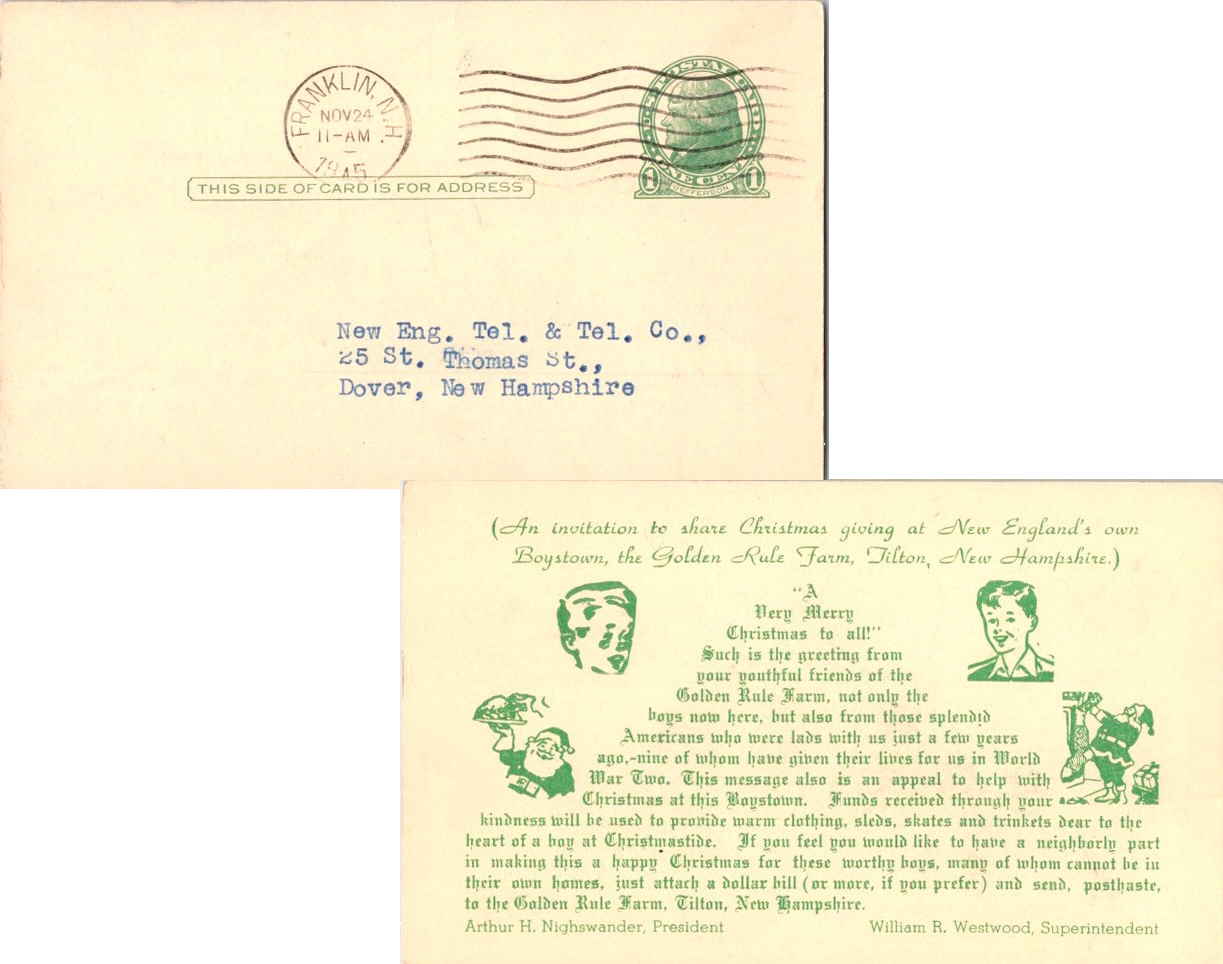 FRANKLIN, N.H.
NOV 24
11-AM
1945
THIS SIDE OF CARD IS FOR ADDRESS
1 JEFFERSON 1
New Eng. Tel. & Tel. Co.,
25 St. Thomas St.,
Dover, New Hampshire
(An invitation to share Christmas giving at New England's own
Boystown, the Golden Rule Farm, Tilton, New Hampshire.)
"A
Very Merry
Christmas to all!"
Such is the greeting from
your youthful friends of the
Golden Rule Farm, not only the
boys now here, but also from those splendid
Americans who were lads with us just a few years
ago,-nine of whom have given their lives for us in World
War Two. This message also is an appeal to help with
Christmas at this Boystown. Funds received through your
kindness will be used to provide warm clothing, sleds, skates and trinkets dear to the
heart of a boy at Christmastide. If you feel you would like to have a neighborly part
in making this a happy Christmas for these worthy boys, many of whom cannot be in
their own homes, just attach a dollar bill (or more, if you prefer) and send, posthaste,
to the Golden Rule Farm, Tilton, New Hampshire.
Arthur H. Nighswander, President William R. Westwood, Superintendent